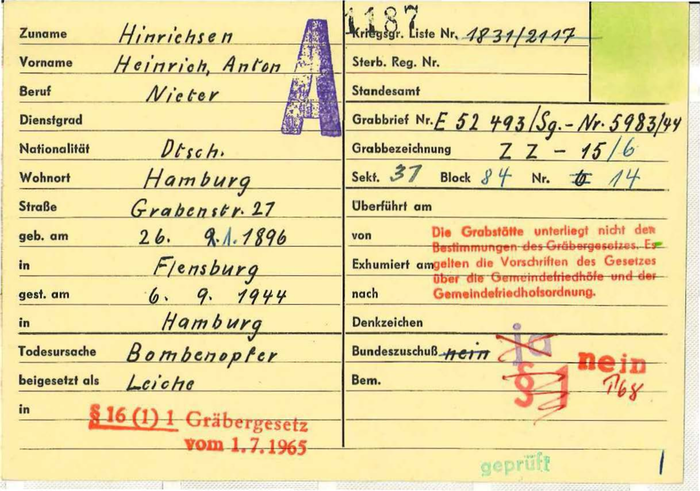 1187
A
Zuname Hinrichsen
Vorname Heinrich, Anton
Beruf Nieter
Dienstgrad
Nationalität Dtsch.
Wohnort Hamburg
Straße Grabenstr. 27
geb. am 26. 1. 1896
in Flensburg
gest. am 6. 9. 1944
in Hamburg
Todesursache Bombenopfer
beigesetzt als Leiche
in
§ 16 (1) 1 Gräbergesetz
vom 1.7.1965
Kriegsgr. Liste Nr. 1831/2117
Sterb. Reg. Nr.
Standesamt
Grabbrief Nr. E 52 493/Sg.-Nr. 5983/44
Grabbezeichnung Z Z - 15/6
Sekt. 37 Block 84 Nr. 14
Überführt am
von
Exhumiert am
nach
Die Grabstätte unterliegt nicht den
Bestimmungen des Gräbergesetzes. Es
gelten die Vorschriften des Gesetzes
über die Gemeindefriedhöfe und der
Gemeindefriedhofsordnung.
Denkzeichen
Bundeszuschuß nein ja nein
Bem. § 1
geprüft